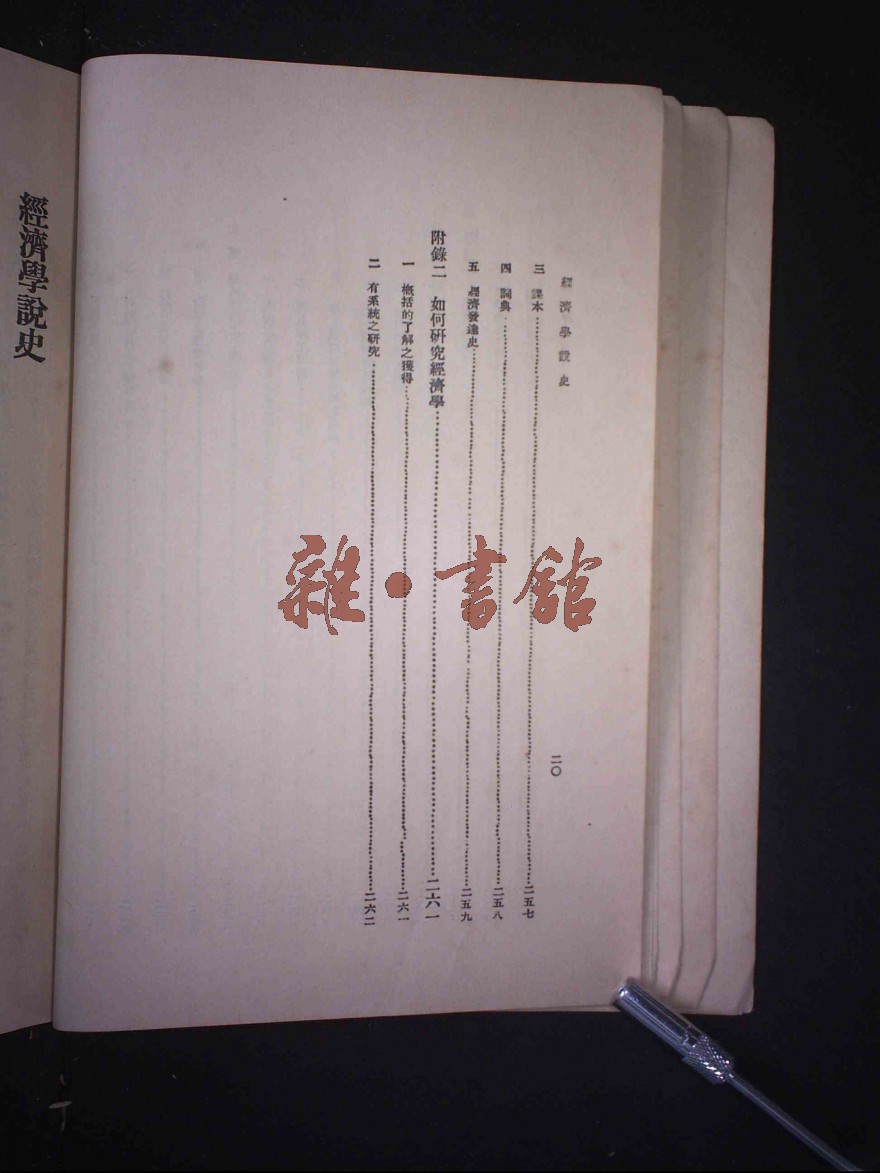 經濟學說史
二〇
三　課本……二五七
四　詞典……二五八
五　經濟發達史……二五九
附錄二　如何研究經濟學……二六一
一　概括的了解之獲得……二六一
二　有系統之研究……二六二
經濟學說史
雜·書館